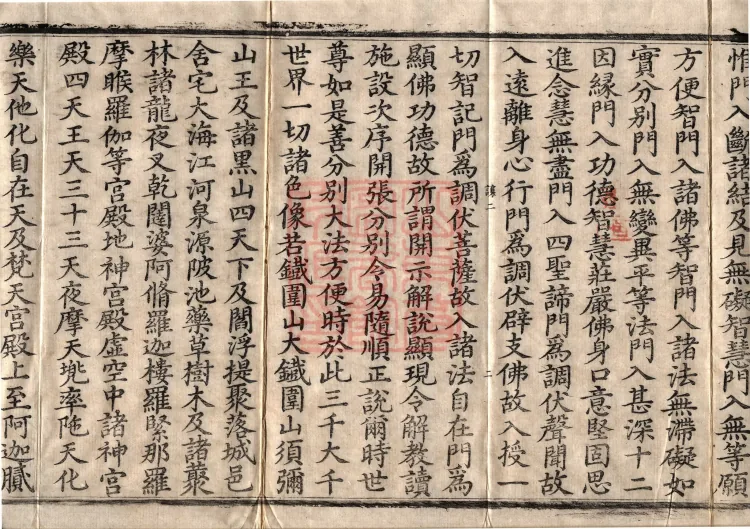 惟門入斷諸結及見無礙智慧門入無等願
方便智門入諸佛等智門入諸法無滯礙如
實分別門入無變異平等法門入甚深十二
因緣門入功德智慧莊嚴佛身口意堅固思
進念慧無盡門入四聖諦門為調伏聲聞故
入遠離身心行門為調伏辟支佛故入授一
切智記門為調伏菩薩故入諸法自在門為
顯佛功德故所謂開示解說顯現令解教讀
施設次序開張分別令易隨順正說爾時世
尊如是善分別大法方便時於此三千大千
世界一切諸色像若鐵圍山大鐵圍山須彌
山王及諸黑山四天下及閻浮提聚落城邑
舍宅大海江河泉源陂池藥草樹木及諸藂
林諸龍夜叉乾闥婆阿脩羅迦樓羅緊那羅
摩睺羅伽等宮殿地神宮殿虛空中諸神宮
殿四天王天三十三天夜摩天兜率陁天化
樂天他化自在天及梵天宮殿上至阿迦膩